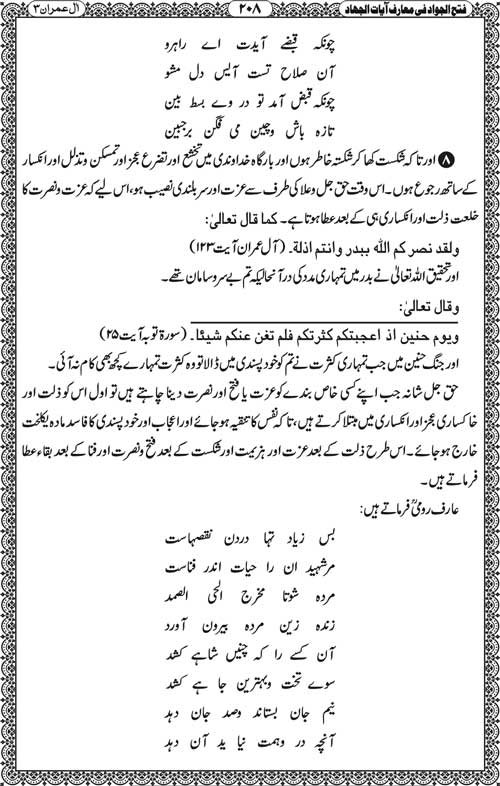 فتح الجواد فی معارف آیات الجهاد ۲۰۸ اٰل عمران ۳
چونکہ قبضے آیدت اے راہرو
آن صلاح تست آلیس دل مشو
چونکہ قبض آمد تو در وے بسط بین
تازہ باش وچین می فگن برجبین
۸ اور تا کہ شکست کھا کر شکستہ خاطر ہوں اور بارگاہ خداوندی میں تخضع اور تضرع عجز اور تمسکن و تذلل اور انکسار
کے ساتھ رجوع ہوں۔ اس وقت حق جل وعلا کی طرف سے عزت اور سربلندی نصیب ہو، اس لیے کہ عزت و نصرت کا
خلعت ذلت اور انکساری ہی کے بعد عطا ہوتا ہے۔ کما قال تعالیٰ:
ولقد نصر کم اللہ ببدر وانتم اذلة۔ (آل عمران آیت ۱۲۳)
اور تحقیق اللہ تعالیٰ نے بدر میں تمہاری مدد کی درآنحالیکہ تم بے سروسامان تھے۔
وقال تعالیٰ:
ویوم حنین اذ اعجبتکم کثرتکم فلم تغن عنکم شیئا۔ (سورۃ توبہ آیت ۲۵)
اور جنگ حنین میں جب تمہاری کثرت نے تم کو خود پسندی میں ڈالا تو وہ کثرت تمہارے کچھ بھی کام نہ آئی۔
حق جل شانہ جب اپنے کسی خاص بندے کو عزت یا فتح اور نصرت دینا چاہتے ہیں تو اول اس کو ذلت اور
خاکساری عجز اور انکساری میں مبتلا کرتے ہیں، تا کہ نفس کا تنقیہ ہو جائے اور اعجاب اور خود پسندی کا فاسد مادہ یکلخت
خارج ہو جائے۔ اس طرح ذلت کے بعد عزت اور ہزیمت اور شکست کے بعد فتح و نصرت اور فنا کے بعد بقاء عطا
فرماتے ہیں۔
عارف رومیؒ فرماتے ہیں:
بس زیاد تہا دردن نقصہاست
مرشہید ان را حیات اندر فناست
مردہ شوتا مخرج الحی الصمد
زندہ زین مردہ بیرون آورد
آن کسے را کہ چنیں شاہے کشد
سوے تخت وبہترین جا ہے کشد
نیم جان بستاند وصد جان دہد
آنچہ در وہمت نیا ید آن دہد